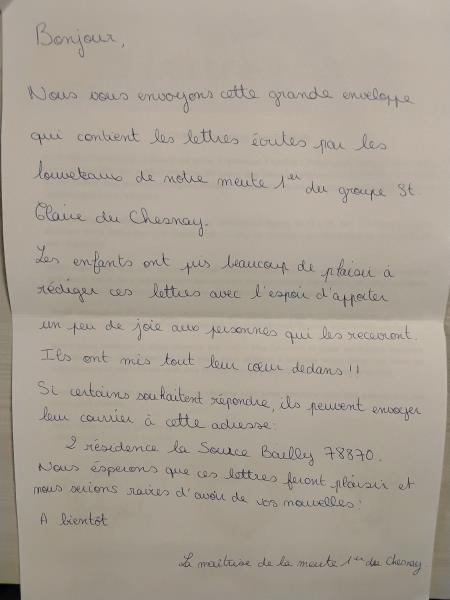 Bonjour,
Nous vous envoyons cette grande enveloppe
qui contient les lettres écrites par les
louveteaux de notre meute 1er du groupe St
Claire du Chesnay.
Les enfants ont pris beaucoup de plaisir à
rédiger ces lettres avec l'espoir d'apporter
un peu de joie aux personnes qui les recevront.
Ils ont mis tout leur cœur dedans !!
Si certains souhaitent répondre, ils peuvent envoyer
leur courrier à cette adresse:
2 résidence la Source Bailly 78870.
Nous ésperons que ces lettres feront plaisir et
nous serions ravies d'avoir de vos nouvelles!
A bientôt
La maîtrise de la meute 1er du Chesnay